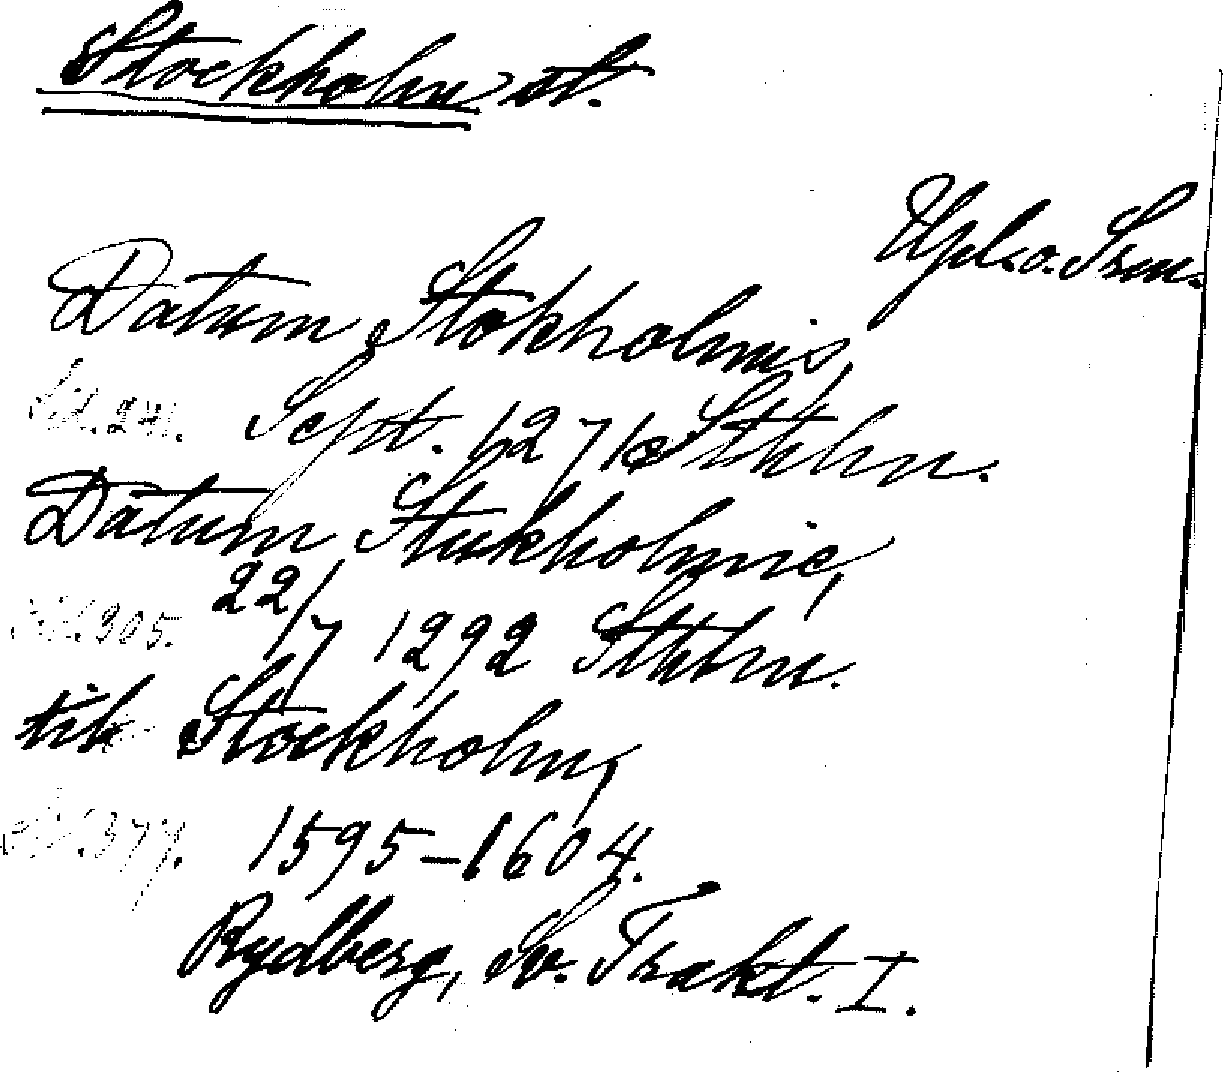 Stockholm st.
Upl. o. Srm.
Datum Stokholmis,
Sid. 241. Sept. 1271 Sthlm.
Datum Stukholmie,
Sid. 305. 22/7 1292 Sthlm.
till Stockholm,
Sid. 377. 1595–1604.
Rydberg, Sv. Trakt. I.